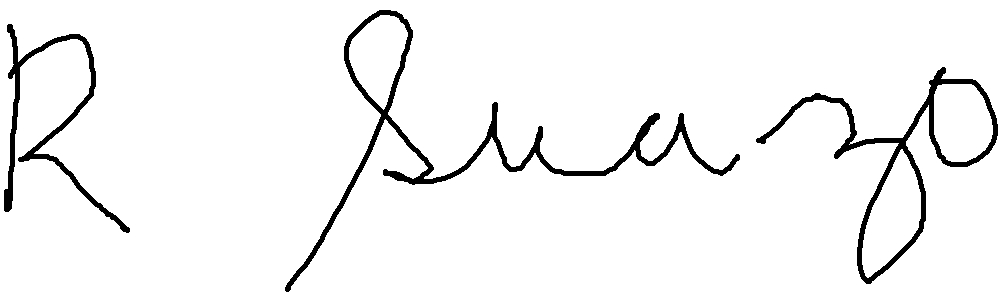 R Suazo